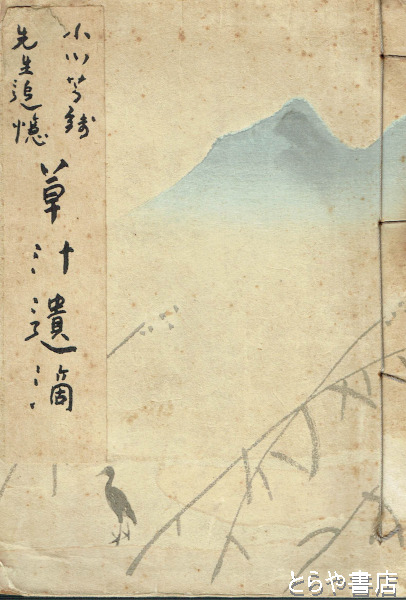 小川芋銭
先生追憶
草汁遺滴
とらや書店